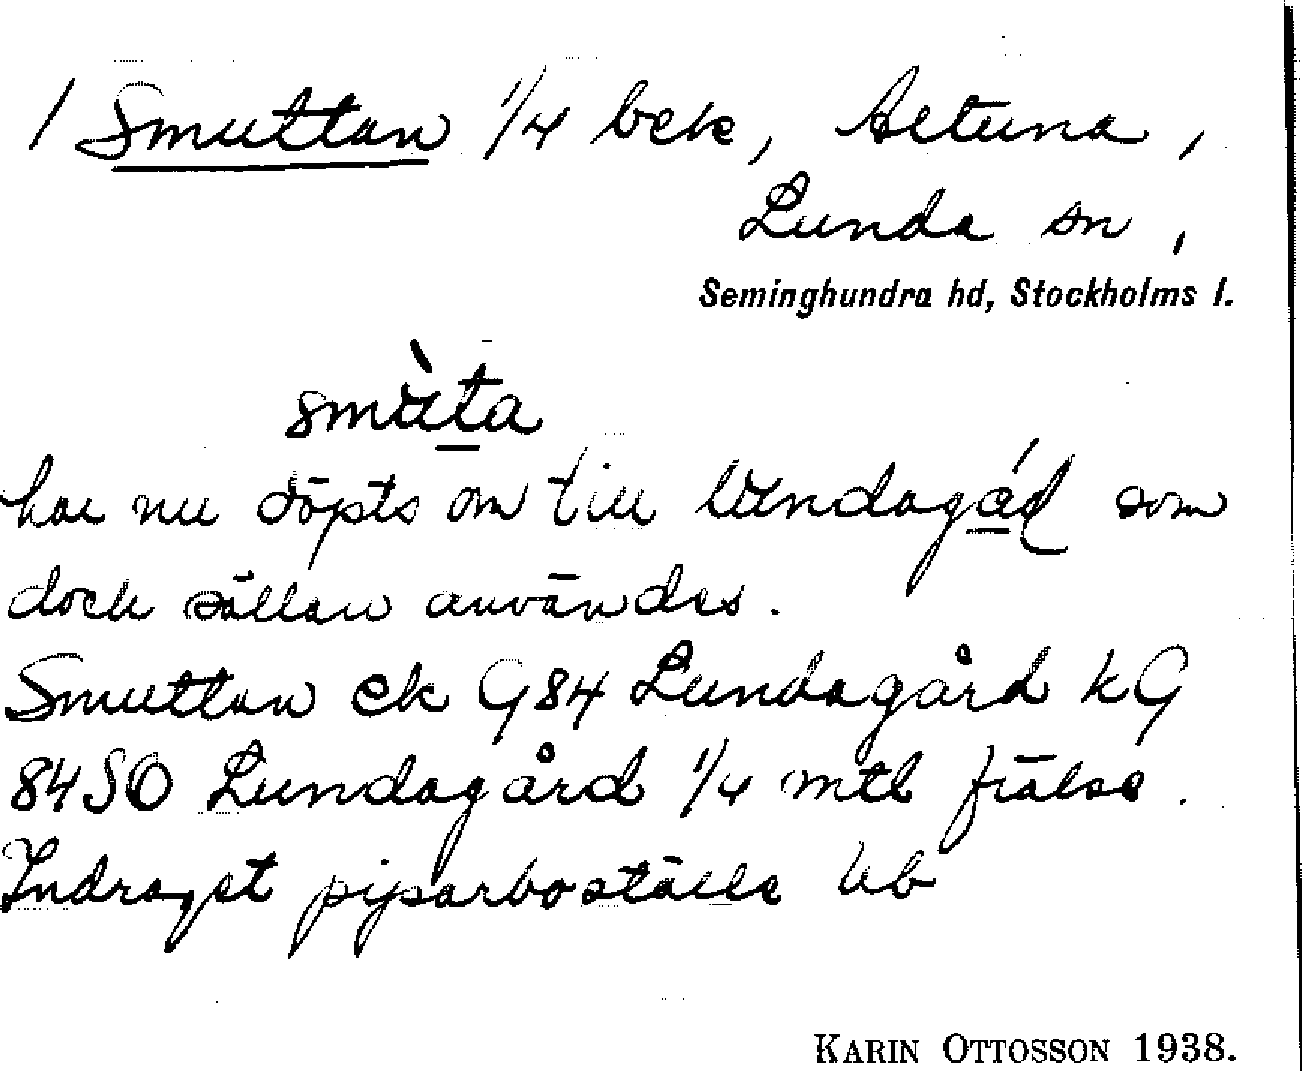 / Smuttan 1/4 bek, Aetuna,
Lunda sn,
Seminghundra hd, Stockholms l.
smùta
har nu döpts om till lundagád som
dock sällan användes.
Smuttan ek G84 Lundagård kG
84 SO Lundagård 1/4 mtl frälse.
Indraget piparboställe
KARIN OTTOSSON 1938.